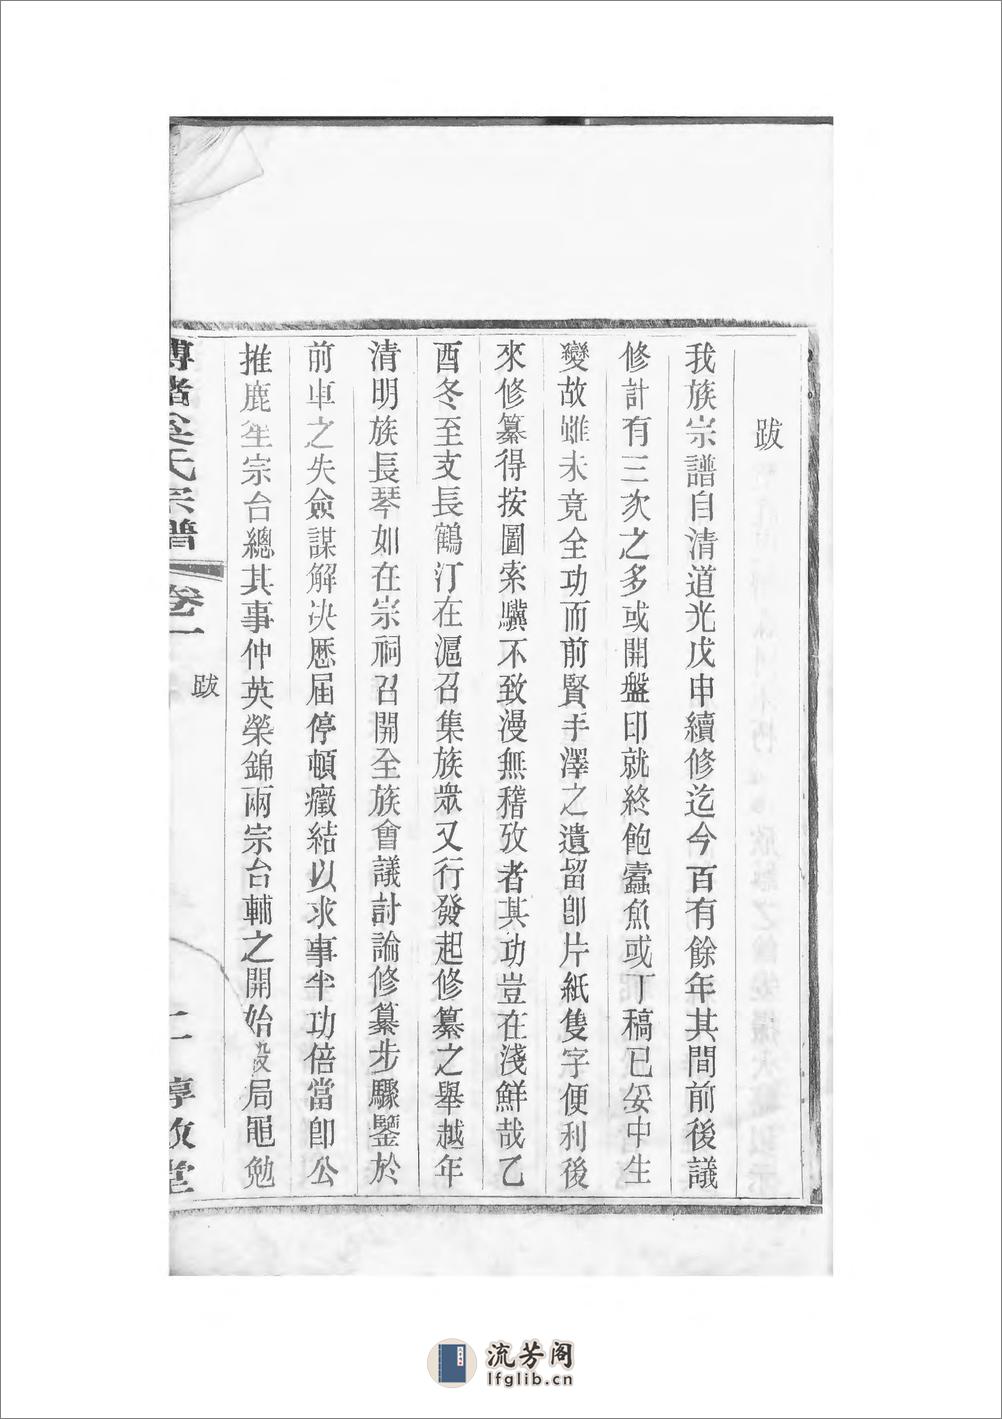 跋
我族宗譜自清道光戊申續修迄今百有餘年其間前後議
修計有三次之多或開盤印就終飽蠹魚或丁稿已妥中生
變故雖未竟全功而前賢手澤之遺留卽片紙隻字便利後
來修纂得按圖索驥不致漫無稽攷者其功豈在淺鮮哉乙
酉冬至支長鶴汀在滬召集族眾又行發起修纂之舉越年
清明族長琴如在宗祠召開全族會議討論修纂步驟鑒於
前車之失僉謀解决歷屆停頓癥結以求事半功倍當卽公
推鹿笙宗台總其事仲英榮錦兩宗台輔之開始設局黽勉
氏宗譜
卷一
跋
二
堂
流芳阁
lfglib.cn